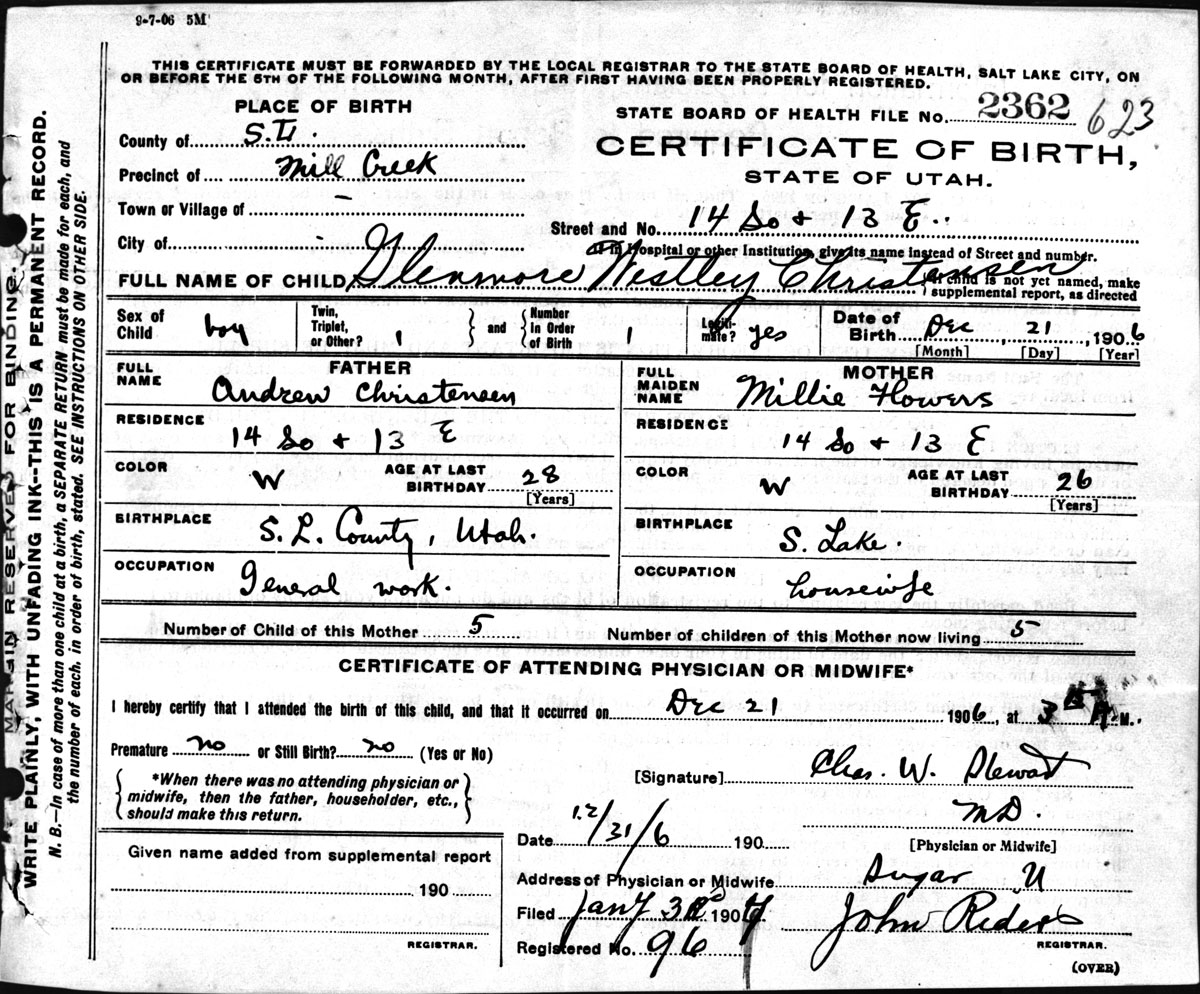 9-7-06 5M
THIS CERTIFICATE MUST BE FORWARDED BY THE LOCAL REGISTRAR TO THE STATE BOARD OF HEALTH, SALT LAKE CITY, ON
OR BEFORE THE 5TH OF THE FOLLOWING MONTH, AFTER FIRST HAVING BEEN PROPERLY REGISTERED.
PLACE OF BIRTH
STATE BOARD OF HEALTH FILE No. 2362 623
County of S.L.
CERTIFICATE OF BIRTH,
Precinct of Mill Creek
STATE OF UTAH.
Town or Village of -
Street and No. 14 So + 13 E.
City of
or in Hospital or other Institution, give its name instead of Street and number.
FULL NAME OF CHILD Glenmore Westley Christensen
If child is not yet named, make
supplemental report, as directed
Sex of Child boy
Twin, Triplet, or Other? 1
and
Number in Order of Birth 1
Legiti-mate? yes
Date of Birth Dec 21, 1906
[Month] [Day] [Year]
FATHER
FULL NAME Andrew Christensen
RESIDENCE 14 So + 13 E
COLOR W AGE AT LAST BIRTHDAY 28
[Years]
BIRTHPLACE S. L. County, Utah.
OCCUPATION General work.
MOTHER
FULL MAIDEN NAME Millie Flowers
RESIDENCE 14 So + 13 E
COLOR W AGE AT LAST BIRTHDAY 26
[Years]
BIRTHPLACE S. Lake.
OCCUPATION housewife
Number of Child of this Mother 5 Number of children of this Mother now living 5
CERTIFICATE OF ATTENDING PHYSICIAN OR MIDWIFE*
I hereby certify that I attended the birth of this child, and that it occurred on Dec 21 1906, at 3 A M.
Premature no or Still Birth? no (Yes or No)
*When there was no attending physician or
midwife, then the father, householder, etc.,
should make this return.
[Signature] Chas. W. Stewart
M.D.
Date 12/31/6 190
[Physician or Midwife]
Given name added from supplemental report
190
REGISTRAR.
Address of Physician or Midwife Sugar
Filed Jany 3rd 1907 John Rider
REGISTRAR.
Registered No. 96
(OVER)
MARGIN RESERVED FOR BINDING.
WRITE PLAINLY, WITH UNFADING INK--THIS IS A PERMANENT RECORD.
N. B.—In case of more than one child at a birth, a SEPARATE RETURN must be made for each, and
the number of each. in order of birth, stated. SEE INSTRUCTIONS ON OTHER SIDE.